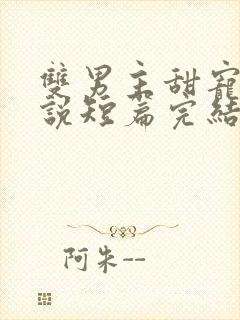 雙男主甜寵
說短篇完結
阿朱--